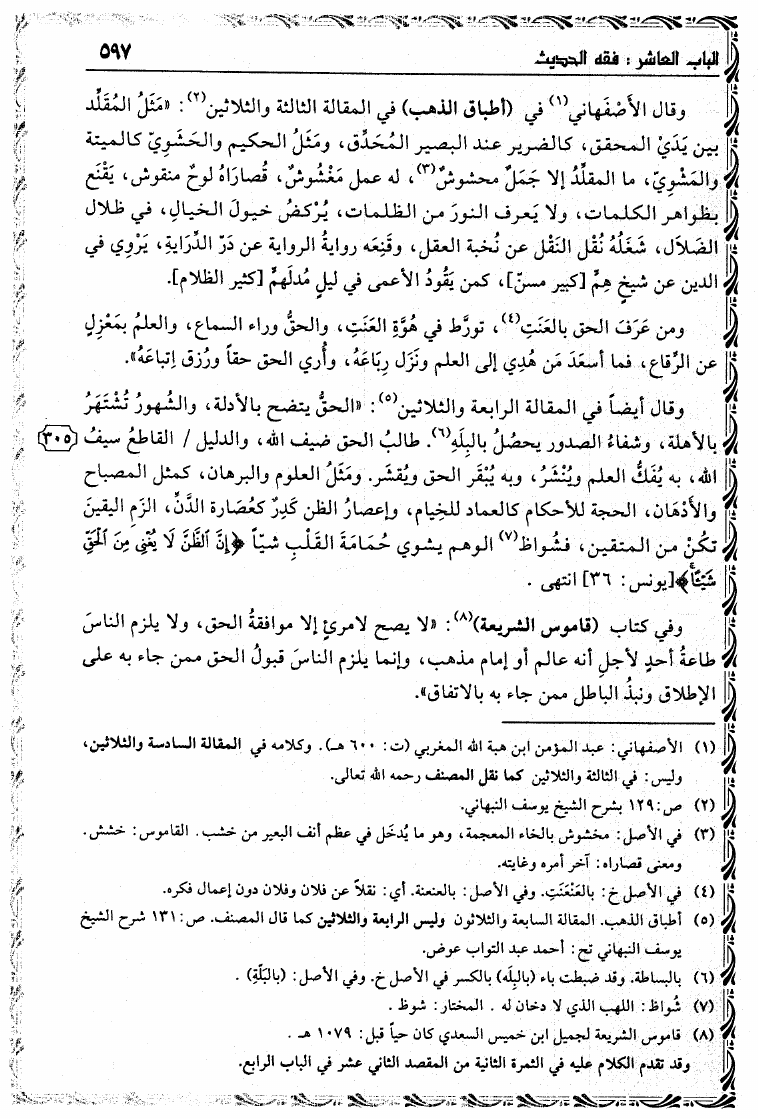 الباب العاشر : فقه الحديث
٥٩٧
وقال الأَصْفَهاني(١) في (أطباق الذهب) في المقالة الثالثة والثلاثين(٢): «مَثَلُ المُقَلِّد
بين يَدَيْ المحقق، كالضرير عند البصير المُحَدِّق، ومَثَلُ الحكيم والحَشَوِيّ كالميتة
والمَشْوِيّ، ما المقلِّدُ إلا جَمَلٌ محشوشٌ(٣)، له عمل مَغْشُوشٌ، قُصارَاهُ لوحٌ منقوش، يَقْنَع
بظواهر الكلمات، ولا يَعرف النورَ من الظلمات، يُرْكضُ خيولَ الخيالِ، في ظلال
الضَلاَل، شَغَلَهُ نُقْل النَقْل عن نُخبة العقل، وقَنِعَه روايةُ الرواية عن دَرّ الدِّرَايةِ، يَرْوِي في
الدين عن شيخٍ هِمٍّ [كبير مسنّ]، كمن يَقُودُ الأعمى في ليلٍ مُدلَهمٍّ [كثير الظلام].
ومن عَرَفَ الحق بالعَنَتِ(٤)، تورَّط في هُوَّةِ العَنَتِ، والحقُّ وراء السماع، والعلمُ بمَعْزِلٍ
عن الرِّقاع، فما أسعَدَ مَن هُدِي إلى العلم ونَزَل رِبَاعَهُ، وأُري الحق حقاً ورُزق إتباعَهُ».
وقال أيضاً في المقالة الرابعة والثلاثين(٥): «الحقُّ يتضح بالأدلة، والشهورُ تُشْتَهَرُ
بالأهلة، وشفاءُ الصدور يحصُلُ بالبِلَهِ(٦). طالبُ الحق ضيف الله، والدليل / القاطعُ سيفُ (٣٠٥)
الله، به يُفَكُّ العلم ويُنْشَرُ، وبه يُبْقَر الحق ويُقشَر. ومَثَلُ العلوم والبرهان، كمثل المصباح
والأَدْهَان، الحجة للأحكام كالعماد للخِيام، وإعصارُ الظن كَدِرٌ كعُصَارة الدَّنِّ، الزَمِ اليقينَ
تكُنْ من المتقين، فشُواظ(٧) الوهم يشوي حُمَامَةَ القَلْبِ شيّاً ﴿إِنَّ الظَّنَّ لَا يُغْنِي مِنَ الْحَقِّ
شَيْئًا﴾ [يونس: ٣٦] انتهى .
وفي كتاب (قاموس الشريعة)(٨): «لا يصح لامرئٍ إلا موافقةُ الحق، ولا يلزم الناسَ
طاعةُ أحدٍ لأجلِ أنه عالم أو إمام مذهب، وإنما يلزم الناسَ قبولُ الحق ممن جاء به على
الإطلاق ونبذُ الباطل ممن جاء به بالاتفاق».
(١) الأصفهاني: عبد المؤمن ابن هبة الله المغربي (ت: ٦٠٠ هـ). وكلامه في المقالة السادسة والثلاثين،
وليس: في الثالثة والثلاثين كما نقل المصنف رحمه الله تعالى.
(٢) ص:١٢٩ بشرح الشيخ يوسف النبهاني.
(٣) في الأصل: مخشوش بالخاء المعجمة، وهو ما يُدخَل في عظم أنف البعير من خشب. القاموس: خشش.
ومعنى قصاراه: آخر أمره وغايته.
(٤) في الأصل خ: بالعَنْعَنَتِ. وفي الأصل: بالعنعنة. أي: نقلاً عن فلان وفلان دون إعمال فكره.
(٥) أطباق الذهب. المقالة السابعة والثلاثون وليس الرابعة والثلاثين كما قال المصنف. ص:١٣١ شرح الشيخ
يوسف النبهاني تح: أحمد عبد التواب عوض.
(٦) بالبساطة. وقد ضبطت باء (بالبِلَه) بالكسر في الأصل خ. وفي الأصل: (بالبَلَّةِ) .
(٧) شُواظ: اللهب الذي لا دخان له . المختار: شوظ .
(٨) قاموس الشريعة لجميل ابن خميس السعدي كان حياً قبل: ١٠٧٩ هـ .
وقد تقدم الكلام عليه في الثمرة الثانية من المقصد الثاني عشر في الباب الرابع.